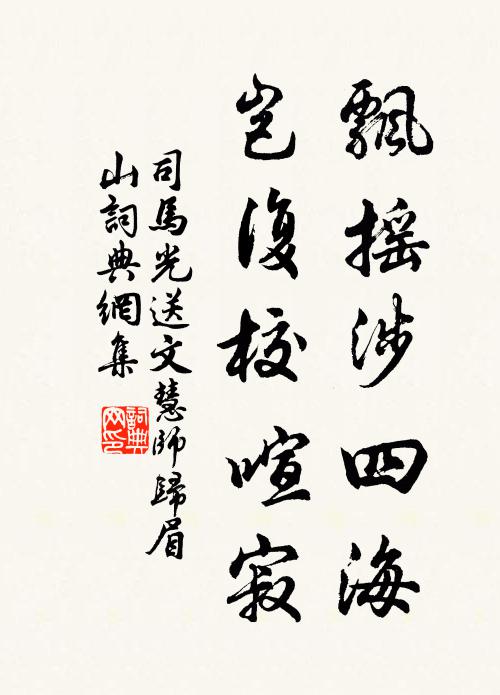 飄摇涉四海
岂復校喧寂
司馬光送文慧師歸眉
山詞典網集
詞典
网印